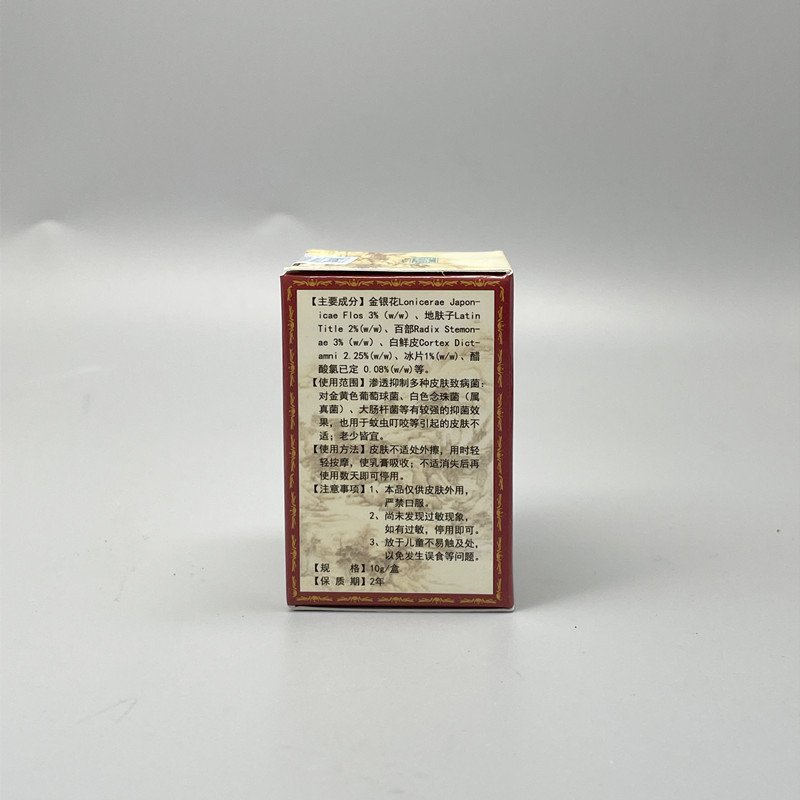 【主要成分】金银花Lonicerae Japon-
icae Flos 3% (w/w) 、地肤子Latin
Title 2%(w/w)、百部Radix Stemon-
ae 3% (w/w) 、白鲜皮Cortex Dict-
amni 2.25%(w/w)、冰片1%(w/w)、醋
酸氯已定 0.08%(w/w)等。
【使用范围】渗透抑制多种皮肤致病菌;
对金黄色葡萄球菌、白色念珠菌（属
真菌）、大肠杆菌等有较强的抑菌效
果，也用于蚊虫叮咬等引起的皮肤不
适；老少皆宜。
【使用方法】皮肤不适处外擦，用时轻
轻按摩，使乳膏吸收；不适消失后再
使用数天即可停用。
【注意事项】1、本品仅供皮肤外用，
严禁口服。
2、尚未发现过敏现象，
如有过敏，停用即可。
3、放于儿童不易触及处，
以免发生误食等问题。
【规 格】10g/盒
【保 质 期】2年